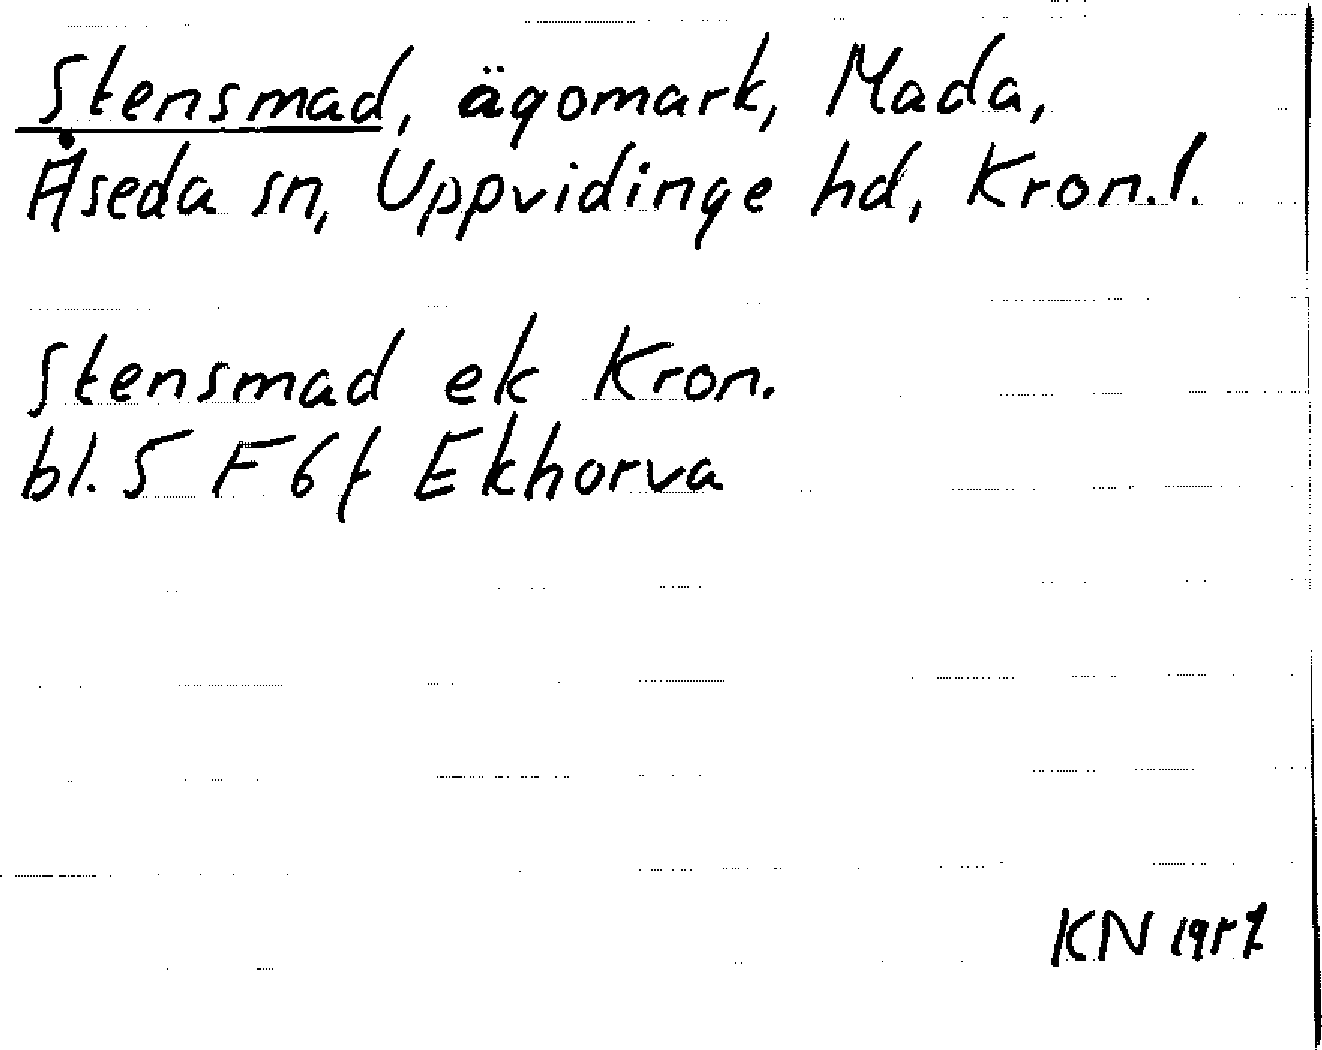 Stensmad, ägomark, Mada,
Åseda sn, Uppvidinge hd, Kron.l.
Stensmad ek Kron.
bl. 5 F 6 f Ekhorva
KN